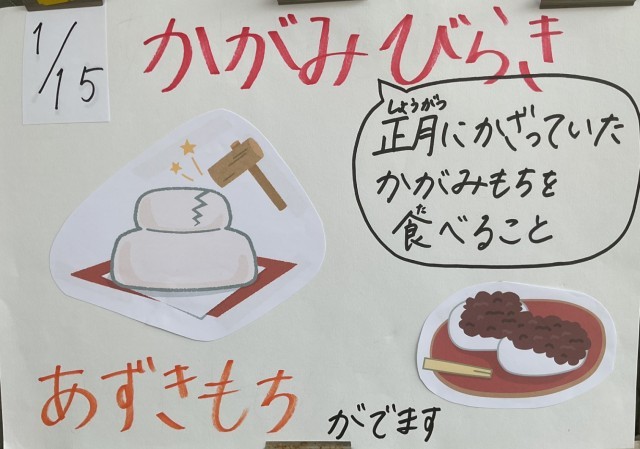 1/15
かがみびらき
しょうがつ
正月にかざっていた
かがみもちを
た
食べること
あずきもち
がでます